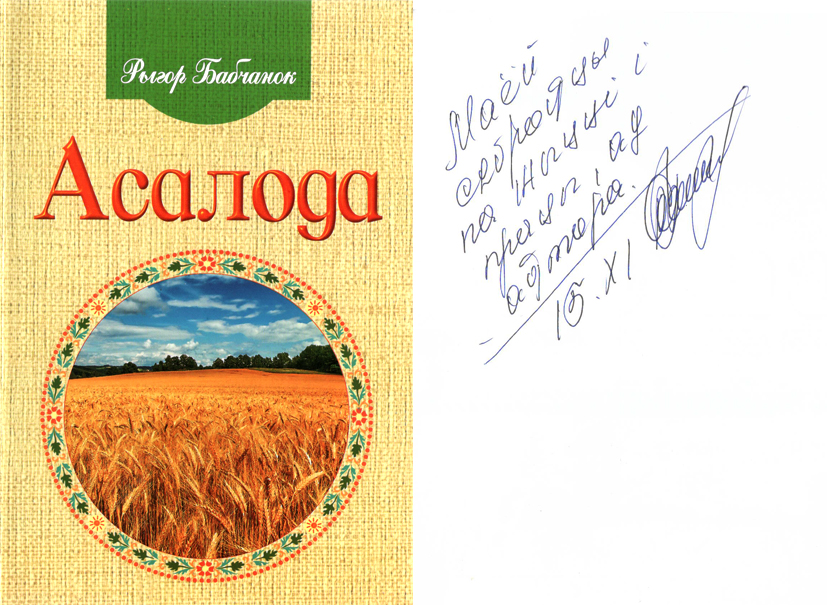 Рыгор Бабчанок
Асалода
Маёй
сяброўцы
па жыцці і
працы ад
аўтара.
15.XI